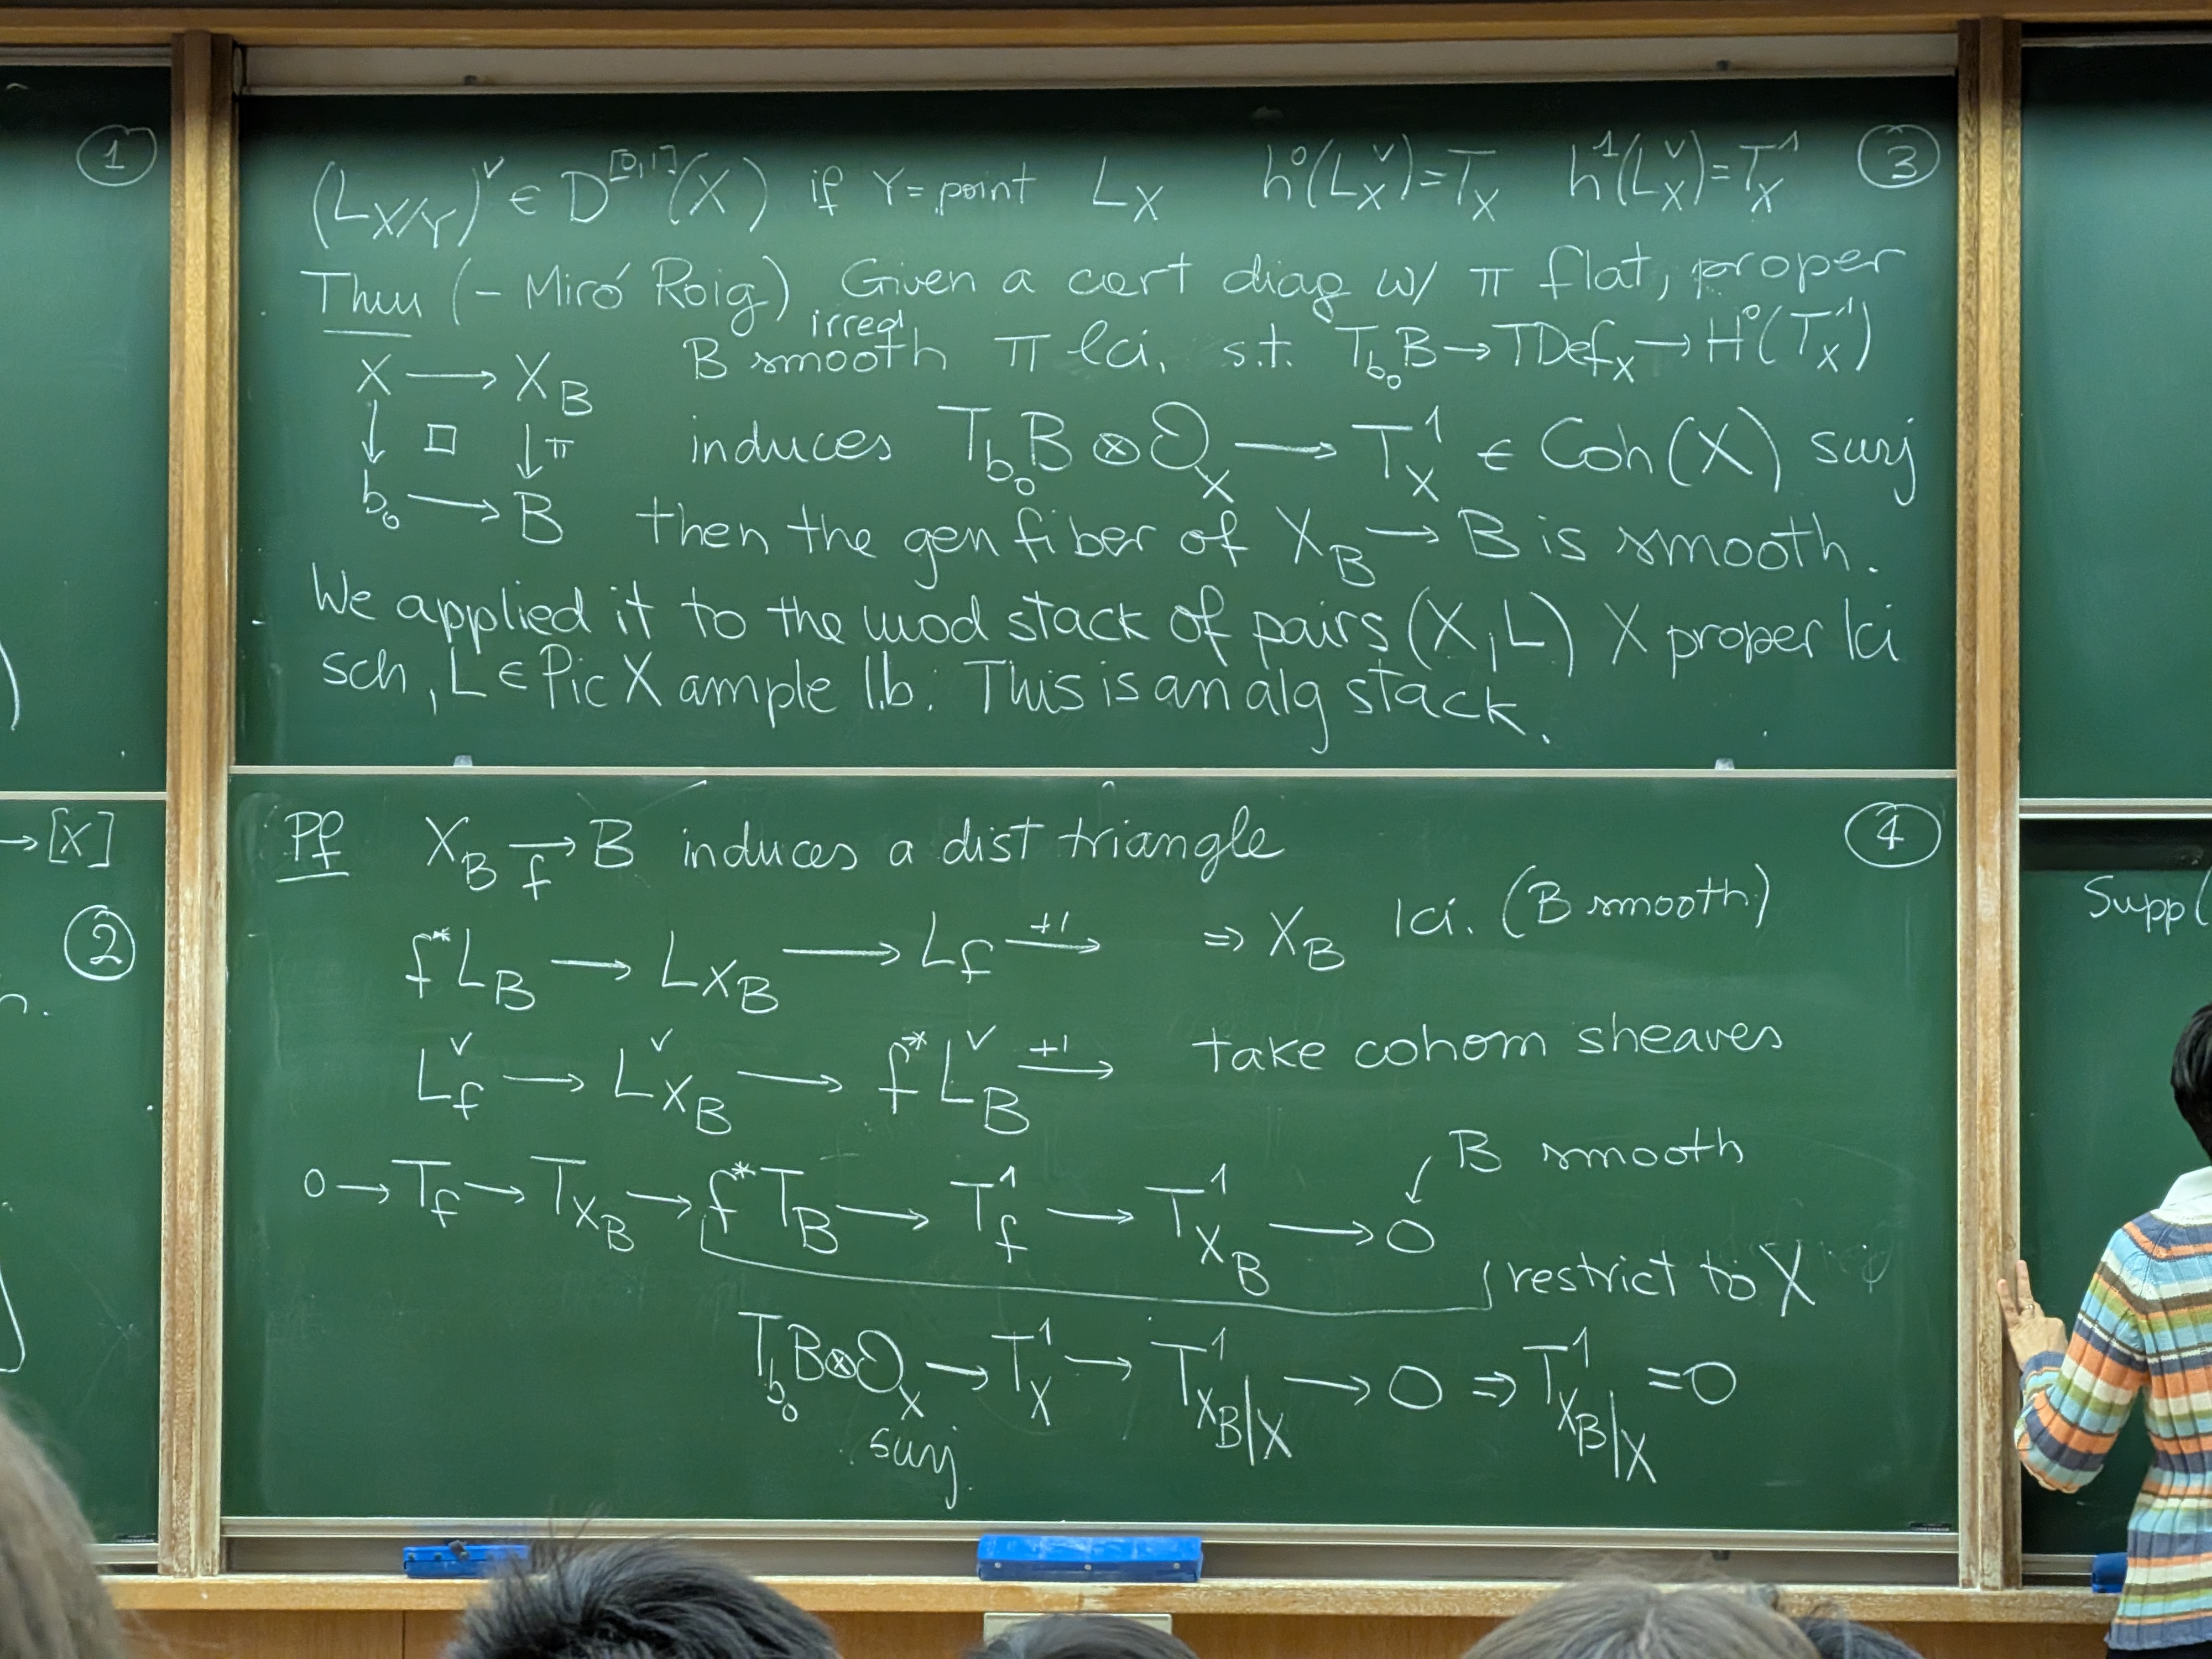 ①
→[X]
②
n.
(L_{X/Y})^∨ ∈ D^{[0,1]}(X) if Y=point L_X h⁰(L_X^∨)=T_X h¹(L_X^∨)=T_X^1 ③
Thm (– Miró Roig) Given a cart diag w/ π flat, proper
irred
X → X_B B smooth π lci, s.t. T_{b₀}B → TDef_X → H⁰(T_X^1)
↓ □ ↓π induces T_{b₀}B ⊗ O_X → T_X^1 ∈ Coh(X) surj
b₀ → B then the gen fiber of X_B → B is smooth.
We applied it to the mod stack of pairs (X, L) X proper lci
sch, L ∈ Pic X ample l.b. This is an alg stack.
Pf X_B →_f B induces a dist triangle ④
f*L_B → L_{X_B} → L_f →^{+1} ⇒ X_B lci. (B smooth)
L_f^∨ → L_{X_B}^∨ → f*L_B^∨ →^{+1} take cohom sheaves
B smooth
0 → T_f → T_{X_B} → f*T_B → T_f^1 → T_{X_B}^1 → 0
restrict to X
T_{b₀}B⊗O_X → T_X^1 → T_{X_B|X}^1 → 0 ⇒ T_{X_B|X}^1 = 0
surj
Supp(